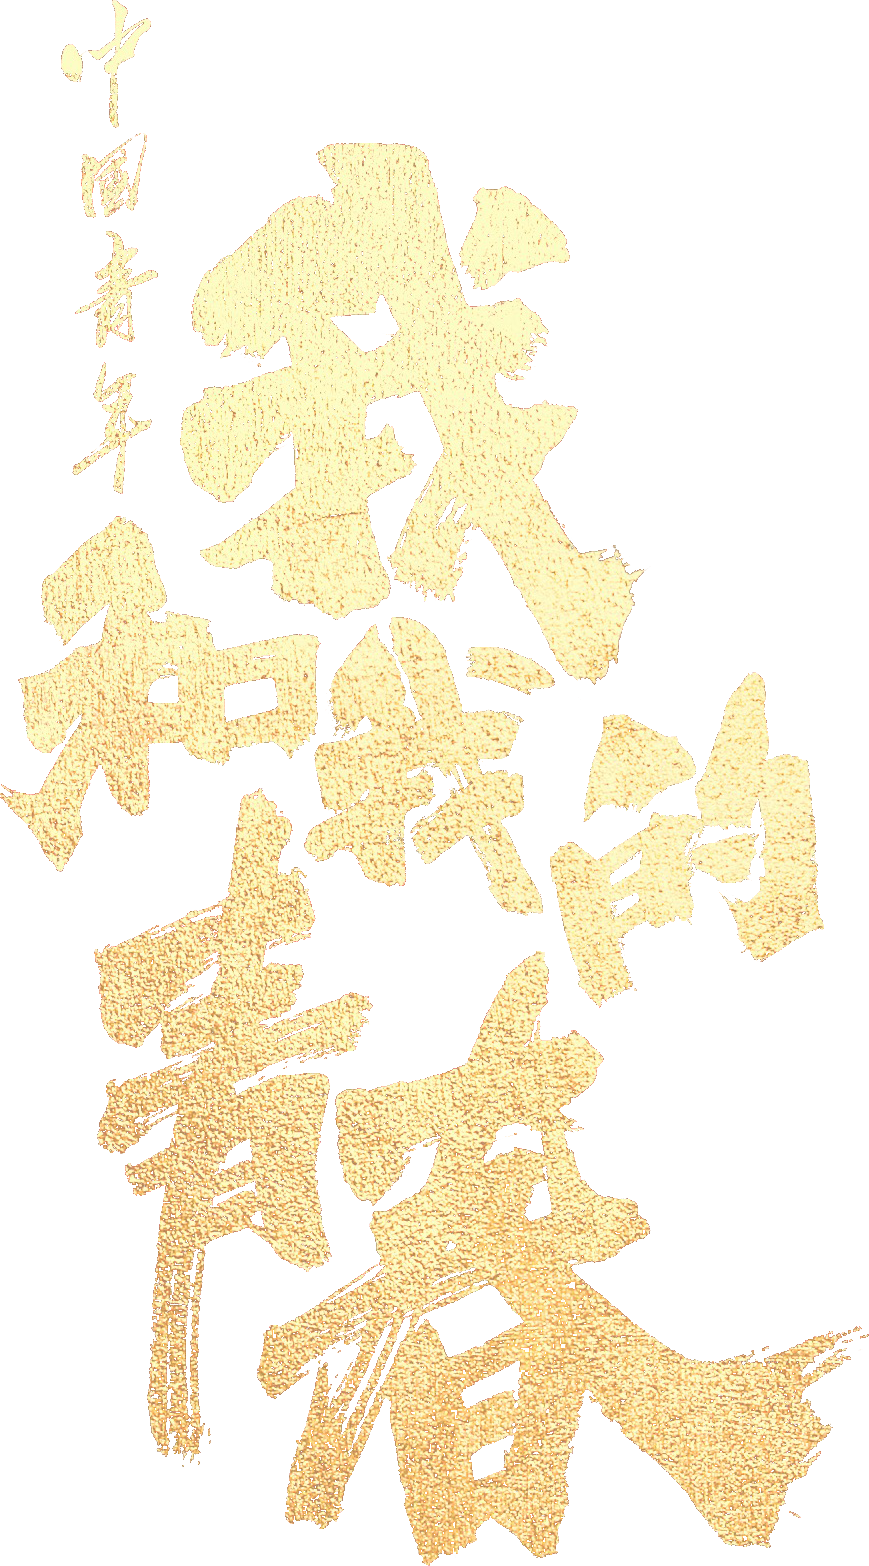 中国青年
我和我的青春